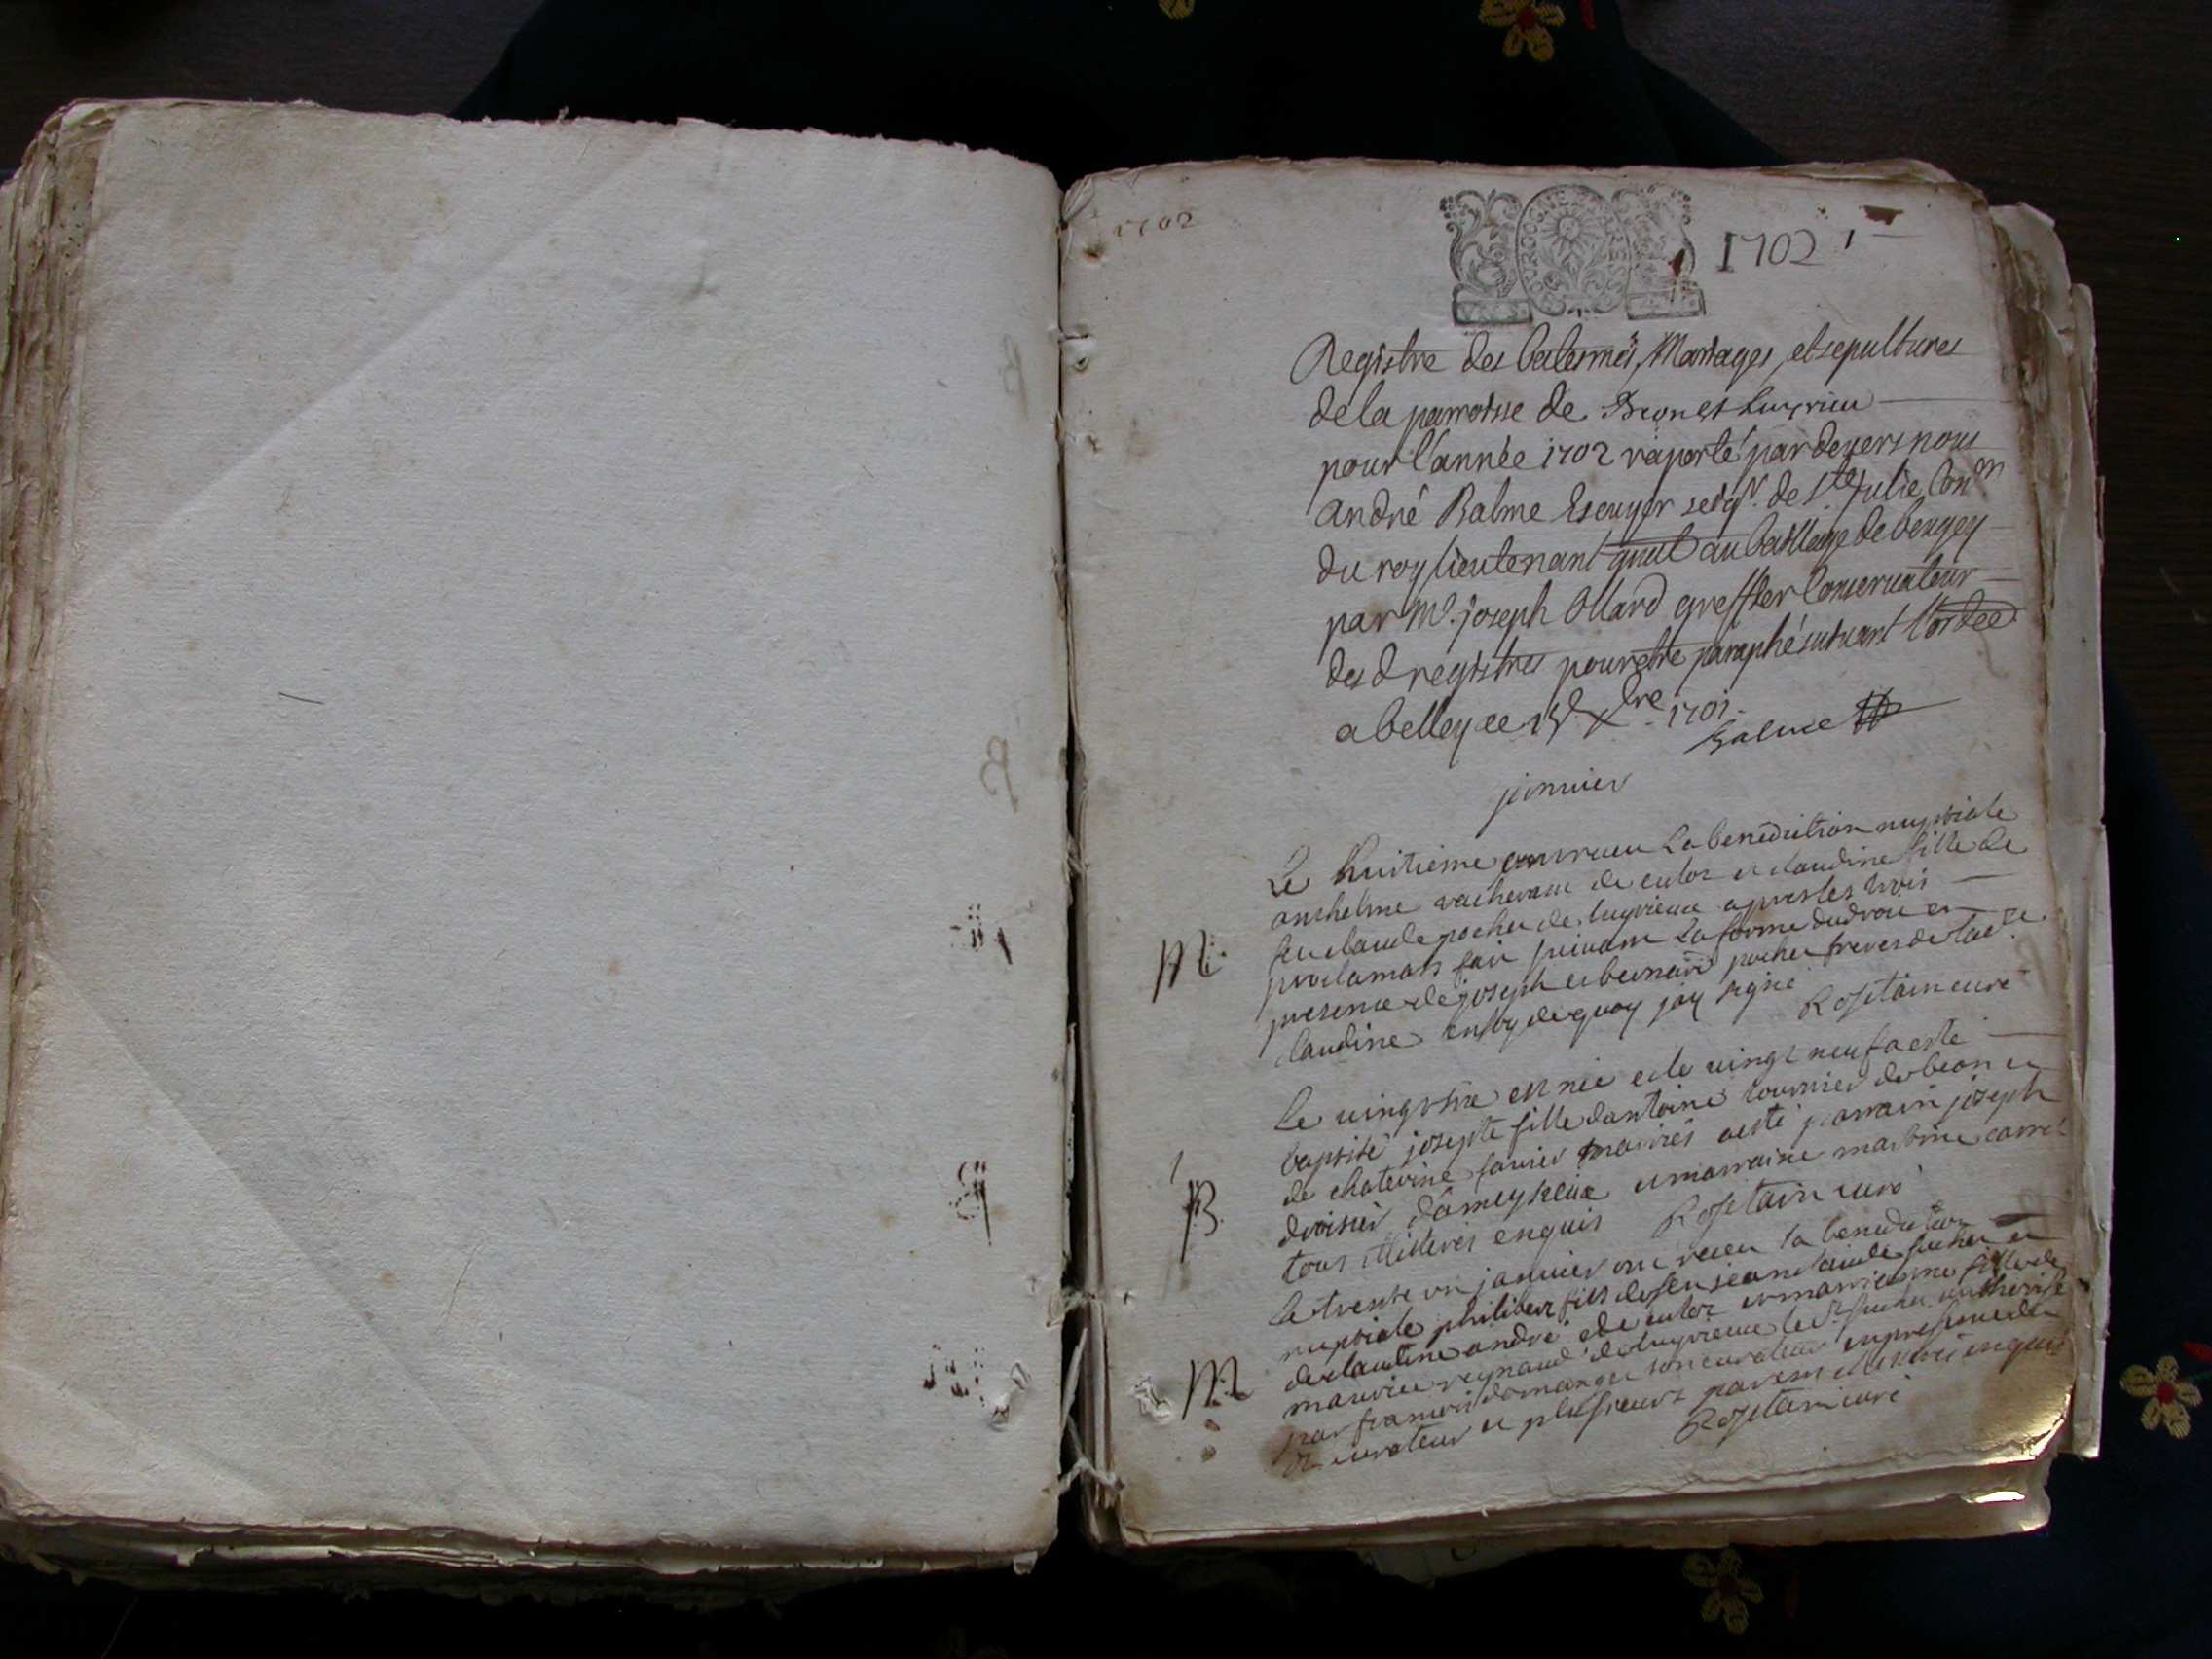 1702
BOURGOGNE
1702 1
Registre des batesmes, Mariages, et sepultures
de la parroisse de Beon et Luyrieu
pour l'année 1702 raporté par devers nous
André Balme Escuyer seigr. de Ste Julie Conlr
du roy lieutenant gnal au bailliage de beugey
par Me. Joseph Ollard greffier Conservateur
des d registres pour etre paraphé suivant l'ordce
a belley ce 15e Xbre 1701.
Balme
janvier
Le huitième ont receu la benediction nuptiale
anthelme vacherand de culoz et claudine fille de
feu claude pochet de luyrieux apres les trois
proclamats fait suivant la forme du droit en
presence de joseph et bernard pochet freres de lade
claudine en foy de quoy jay signé
Rostain curé
M
Le vingt est née et le vingt neuf a esté
baptisé josepte fille dantoine tournier de beon et
de chaterine favier mariés a esté parrain joseph
droisier d'ameyzieux et marraine martine carrel
tous illiterés enquis Rostain curé
B
Le trente un janvier ont receu la benediction
nuptiale philibert fils de feu jean claude suchet et
de claudine andré de culoz et marrienne fille de
maurice reynaud de luyrieux le sr suchet authorisé
par francois demanger son curateur en presence du
dt curateur et plusieurs parens illiterés enquis
Rostain curé
M